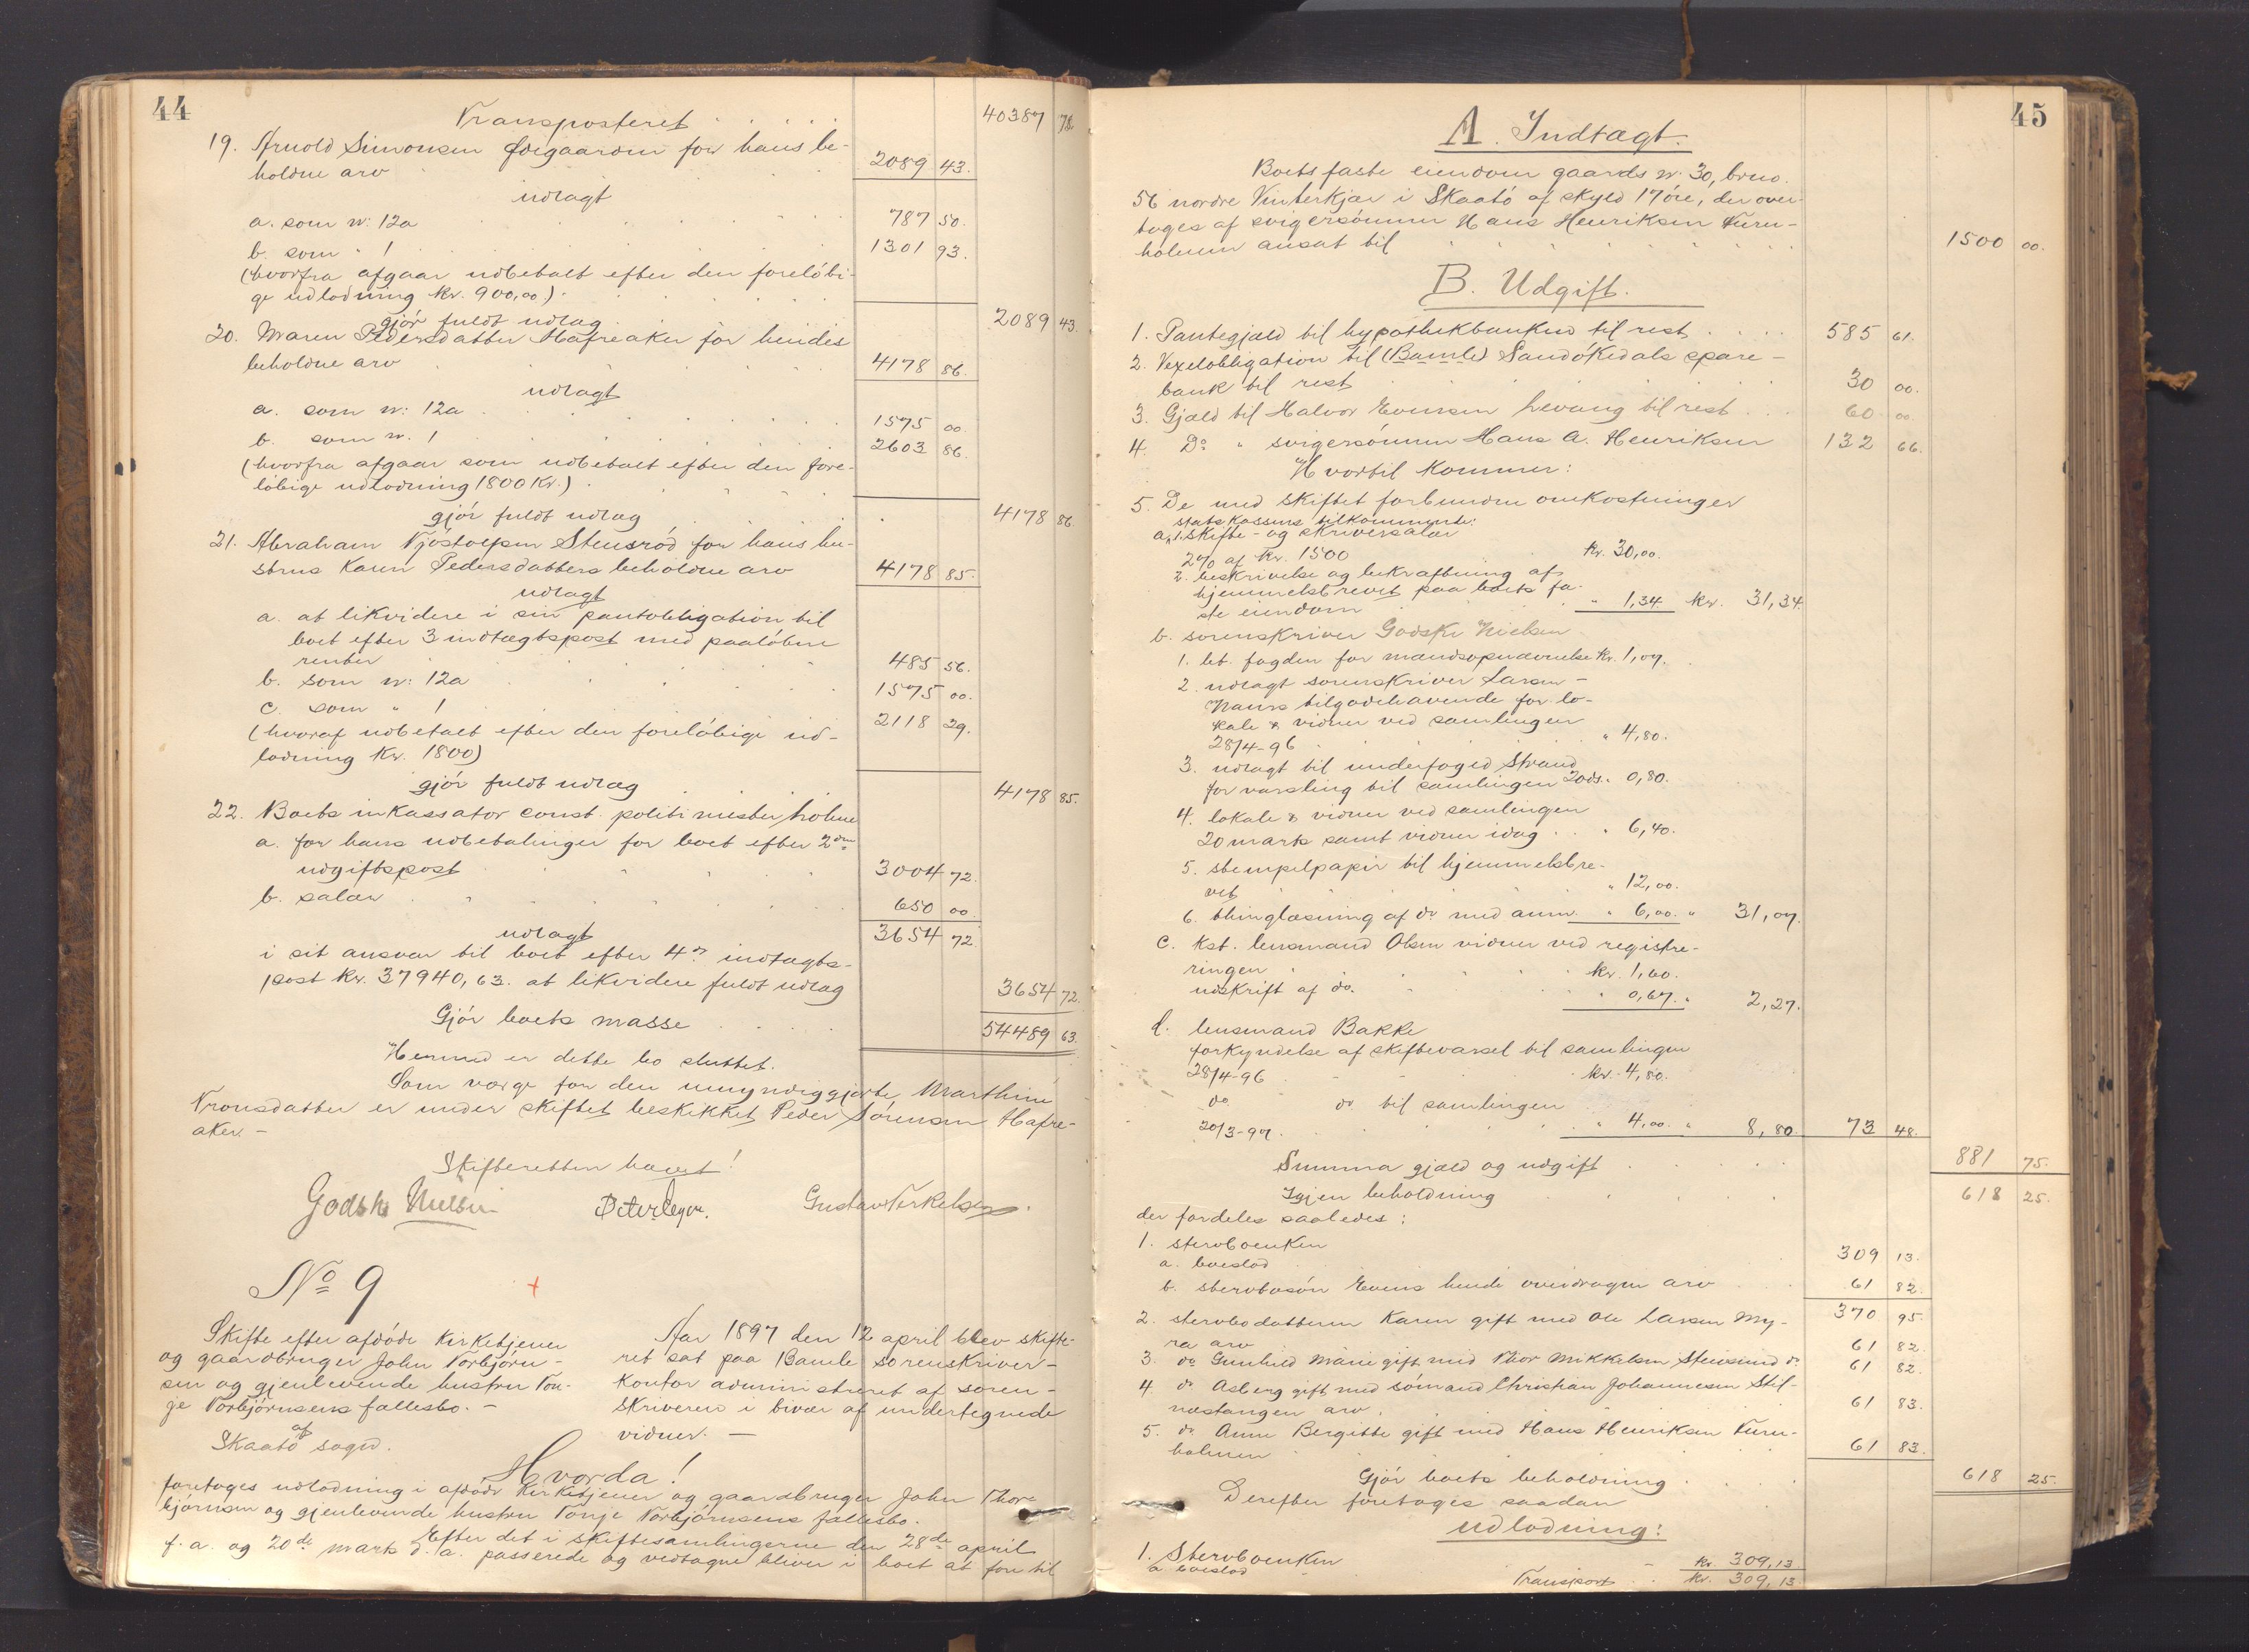 44
Transporteret . . . . . 40387 78.
19. Arnold Simonsen Ødegaarden for hans be-
holdne arv 2089 43.
udlagt
a. som n: 12a 787 50.
b. som " 1 1301 93.
(hvorfra afgaar udbetalt efter den foreløbi-
ge udlodning Kr. 900,00).
gjør fuldt udlag 2089 43.
20. Maren Pedersdatter Hafreaker for hendes
beholdne arv 4178 86.
udlagt
a. som n: 12a 1575 00.
b. som n. 1 2603 86.
(hvorfra afgaar som udbetalt efter den fore-
løbige udlodning 1800 Kr.)
gjør fuldt udlag 4178 86.
21. Abraham Tjøstolfsen Stensrød for hans hu-
strus Karen Pedersdatters beholdne arv 4178 85.
udlagt
a. at likvidere i sin pantobligation til
boet efter 3 indtægtspost med paaløbne
renter 485 56.
b. som n: 12a 1575 00.
c. som " 1 2118 29.
(hvoraf udbetalt efter den foreløbige ud-
lodning Kr. 1800)
gjør fuldt udlag 4178 85.
22. Boets inkassator const. politimester Holme
a. for hans udbetalinger for boet efter 2den
udgiftspost 3004 72.
b. salær 650 00.
udlagt 3654 72.
i sit ansvar til boet efter 4de indtægts-
post Kr. 37940,63. at likvidere fuldt udlag 3654 72.
Gjør boets masse 54489 63.
Hermed er dette bo sluttet.
Som værge for den umyndiggjorte Marthine
Tronsdatter er under skiftet beskikket Peder Sørensen Hafre-
aker. -
Skifteretten hævet!
Godske Nielsen Gustav Terkelsen.
No 9
Skifte efter afdøde Kirketjener
og gaardbruger John Torbjørn-
sen og gjenlevende hustru Ton-
ge Torbjørnsens fællesbo. -
af
Skaatø sogn.
Aar 1897 den 12 april blev skifte-
ret sat paa Bamle sorenskriver-
kontor administreret af soren-
skriveren i hvær af undertegnede
vidner. -
Hvorda!
foretoges udlodning i afdøde Kirketjener og gaardbruger John Thor-
bjørnsen og gjenlevende hustru Tonje Torbjørnsens fællesbo.
Efter det i skiftesamlingerne den 28de april
f. a. og 20de marts d. a. passerede og vedtagne bliver i boet at føre til
45
A. Indtægt.
Boets faste eiendom gaards n: 30, brno.
56 nordre Vinterkjær i Skaatø af skyld 17 øre, der over-
tages af svigersønnen Hans Henriksen Furu-
holmen ansat til 1500 00.
B. Udgift.
1. Pantegjæld til hypothekbanken til rest . . . . 585 61.
2. Vexelobligation til (Bamle) Sandøkedals spare-
bank til rest 30 00.
3. Gjæld til Halvor Evensen Levang til rest . . . 60 00.
4. Do " svigersønnen Hans A. Henriksen 132 66.
Hvortil kommer:
5. De med skiftet forbundne omkostninger
statskassens tilkommende:
a, 1. Skifte- og skriversalær
2% af Kr. 1500 Kr. 30,00.
2. beskrivelse og bekræftning af
hjemmelsbrevet paa boets fa-
ste eiendom " 1,34 Kr. 31,34.
b. sorenskriver Godske Nielsen
1. bet. fogden for mandsopnævnelse Kr. 1,07.
2. udlagt sorenskriver Larsen-
Nauns tilgodehavende for lo-
kale & vidner ved samlingen
28/4-96 " 4,80.
3. udlagt til underfoged Strand
for varsling til samlingen 20ds. " 0,80.
4. lokale & vidner ved samlingen
20 marts samt vidner idag . . " 6,40.
5. stempelpapir til hjemmelsbre-
vet " 12,00.
6. thinglæsning af do med anm. " 6,00. " 31,07.
c. Kst. lensmand Olsen vidner ved registre-
ringen Kr. 1,60.
udskrift af do. " 0,67. " 2,27.
d. lensmand Bakke
forkyndelse af skiftevarsel til samlingen
28/4-96 Kr. 4,80.
do do til samlingen
20/3-97. " 4,00. " 8,80. 73 48.
Summa gjæld og udgift 881 75.
Igjen beholdning 618 25.
der fordeles saaledes:
1. stervboenken
a. boeslod 309 13.
b. stervbosøn Evens hende overdragen arv 61 82.
370 95.
2. stervbodatteren Karen gift med Ole Larsen My-
ra arv 61 82.
3. do Gunhild Marie gift med Thor Mikkelsen Stensund do 61 82.
4. do Asberg gift med sømand Christian Johannesen Stil-
næstangen arv 61 83.
5. do Anne Bergitte gift med Hans Henriksen Furu-
holmen 61 83.
Gjør boets beholdning 618 25.
Derefter foretoges saadan
udlodning:
1. Stervboenken
a boeslod Kr. 309,13
Transport . . Kr. 309,13.